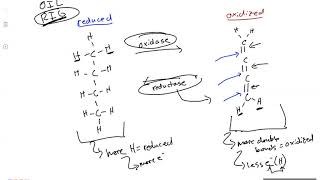 OIL
RIG
reduced
oxidized
oxidase
reductase
H H
H-C-H
H-C-H
H-C-H
H-C-H
H
H H
C
C
C
C
H H
more H = reduced
more e⁻
more double
bonds = oxidized
less e⁻ (H)